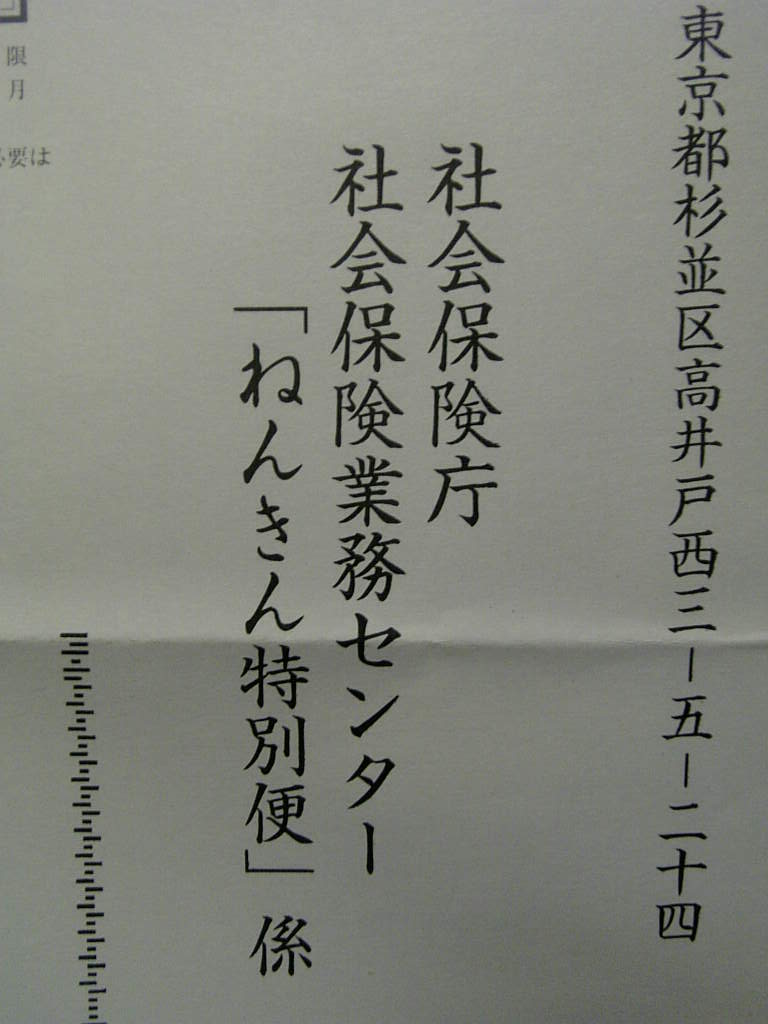 東京都杉並区高井戸西三－五－二十四
社会保険庁
社会保険業務センター
「ねんきん特別便」係
限
月
必要は